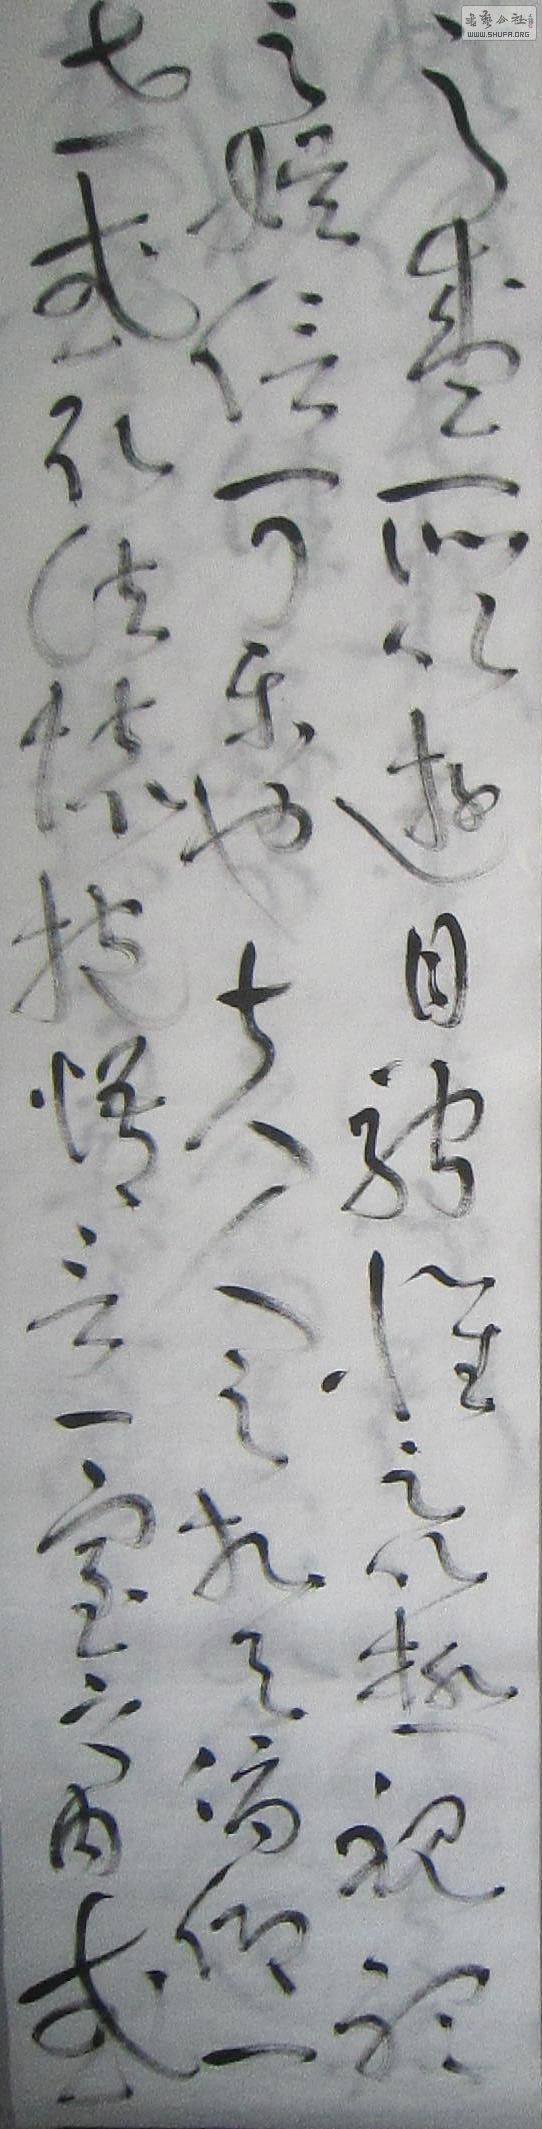 之盛所以遊目騁懷足以極視聽
之娛信可樂也夫人之相與俯仰一
世或取諸懷抱悟言一室之內或
書藝公社
WWW.SHUFA.ORG